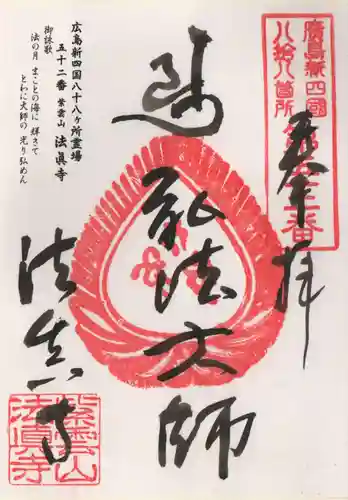 廣島新四國
八拾八箇所
第五十二番
奉拜
弘法大師
法真寺
広島新四国八十八ヶ所霊場
五十二番 紫雲山 法眞寺
御詠歌
法の月 まことの海に 輝きて
とわに大師の 光り弘めん
紫雲山
法眞寺